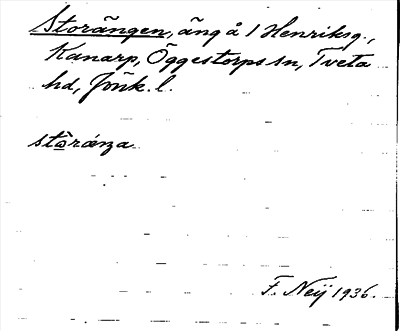 Storängen, äng å 1 Henriksg.,
Kanarp, Öggestorps sn, Tveta
hd, Jönk. l.
F. Neij 1936.